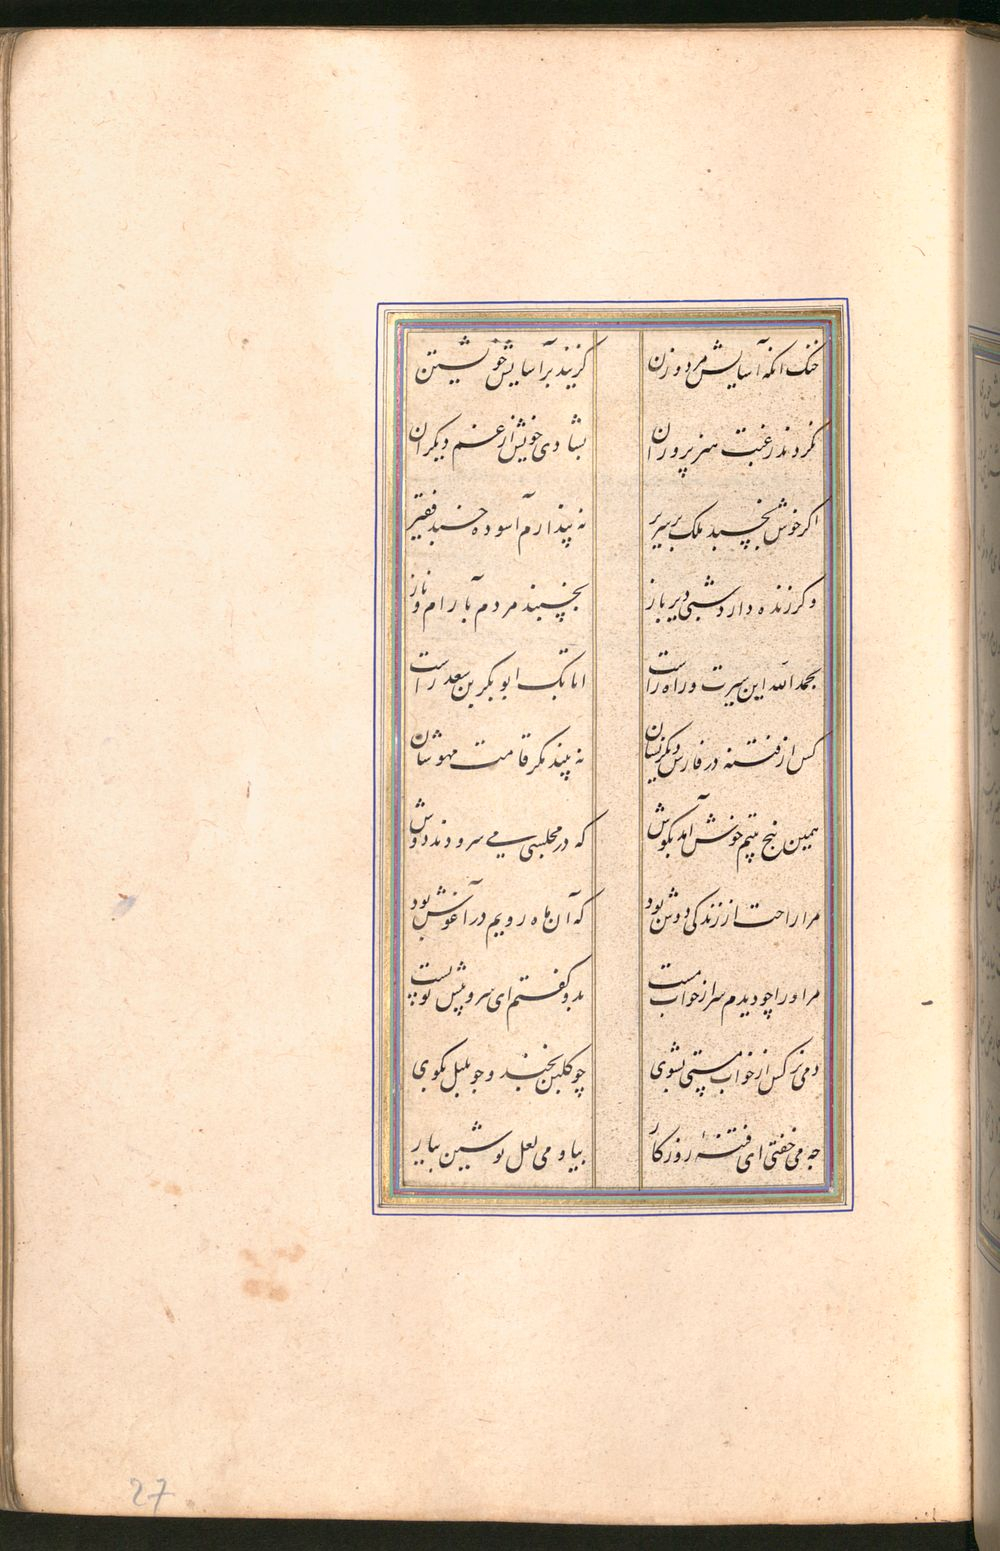 خنک آنکه آسایش مرد و زن
گزیند بر آسایش خویشتن
نکردند رغبت هنرپروران
بشادی خویش از غم دیگران
اگر خوش بخسبد ملک بر سریر
نه پندارم آسوده خسبد فقیر
وگر زنده دارد شبی دیر باز
بخسبند مردم بآرام و ناز
بحمد الله این سیرت و راه راست
اتابک ابوبکر بن سعد راست
کس از فتنه در فارس دیگر نشان
نه بیند مگر قامت مهوشان
همین پنج بیتم خوش آمد بگوش
که در مجلسی می سرودند دوش
مرا راحت از زندگی دوش بود
که آن ماه رویم در آغوش بود
مر او را چو دیدم سر از خواب مست
بدو گفتم ای سرو پیش تو پست
دمی نرکس از خواب مستی بشوی
چو کلبن بخند و چو بلبل بکوی
چه می خفتی ای فتنهٔ روزکار
بیا و می لعل نوشین بیار
27